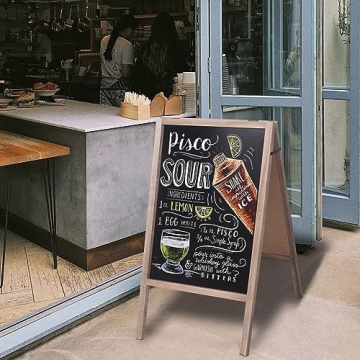 Pisco
SOUR
SHAKE
with
ICE
INGREDIENTS:
1 LEMON
1 EGG WHITE
1½ oz PISCO
¾ oz Simple Syrup
pour into a
whiskey glass
& GARNISH with
BITTERS